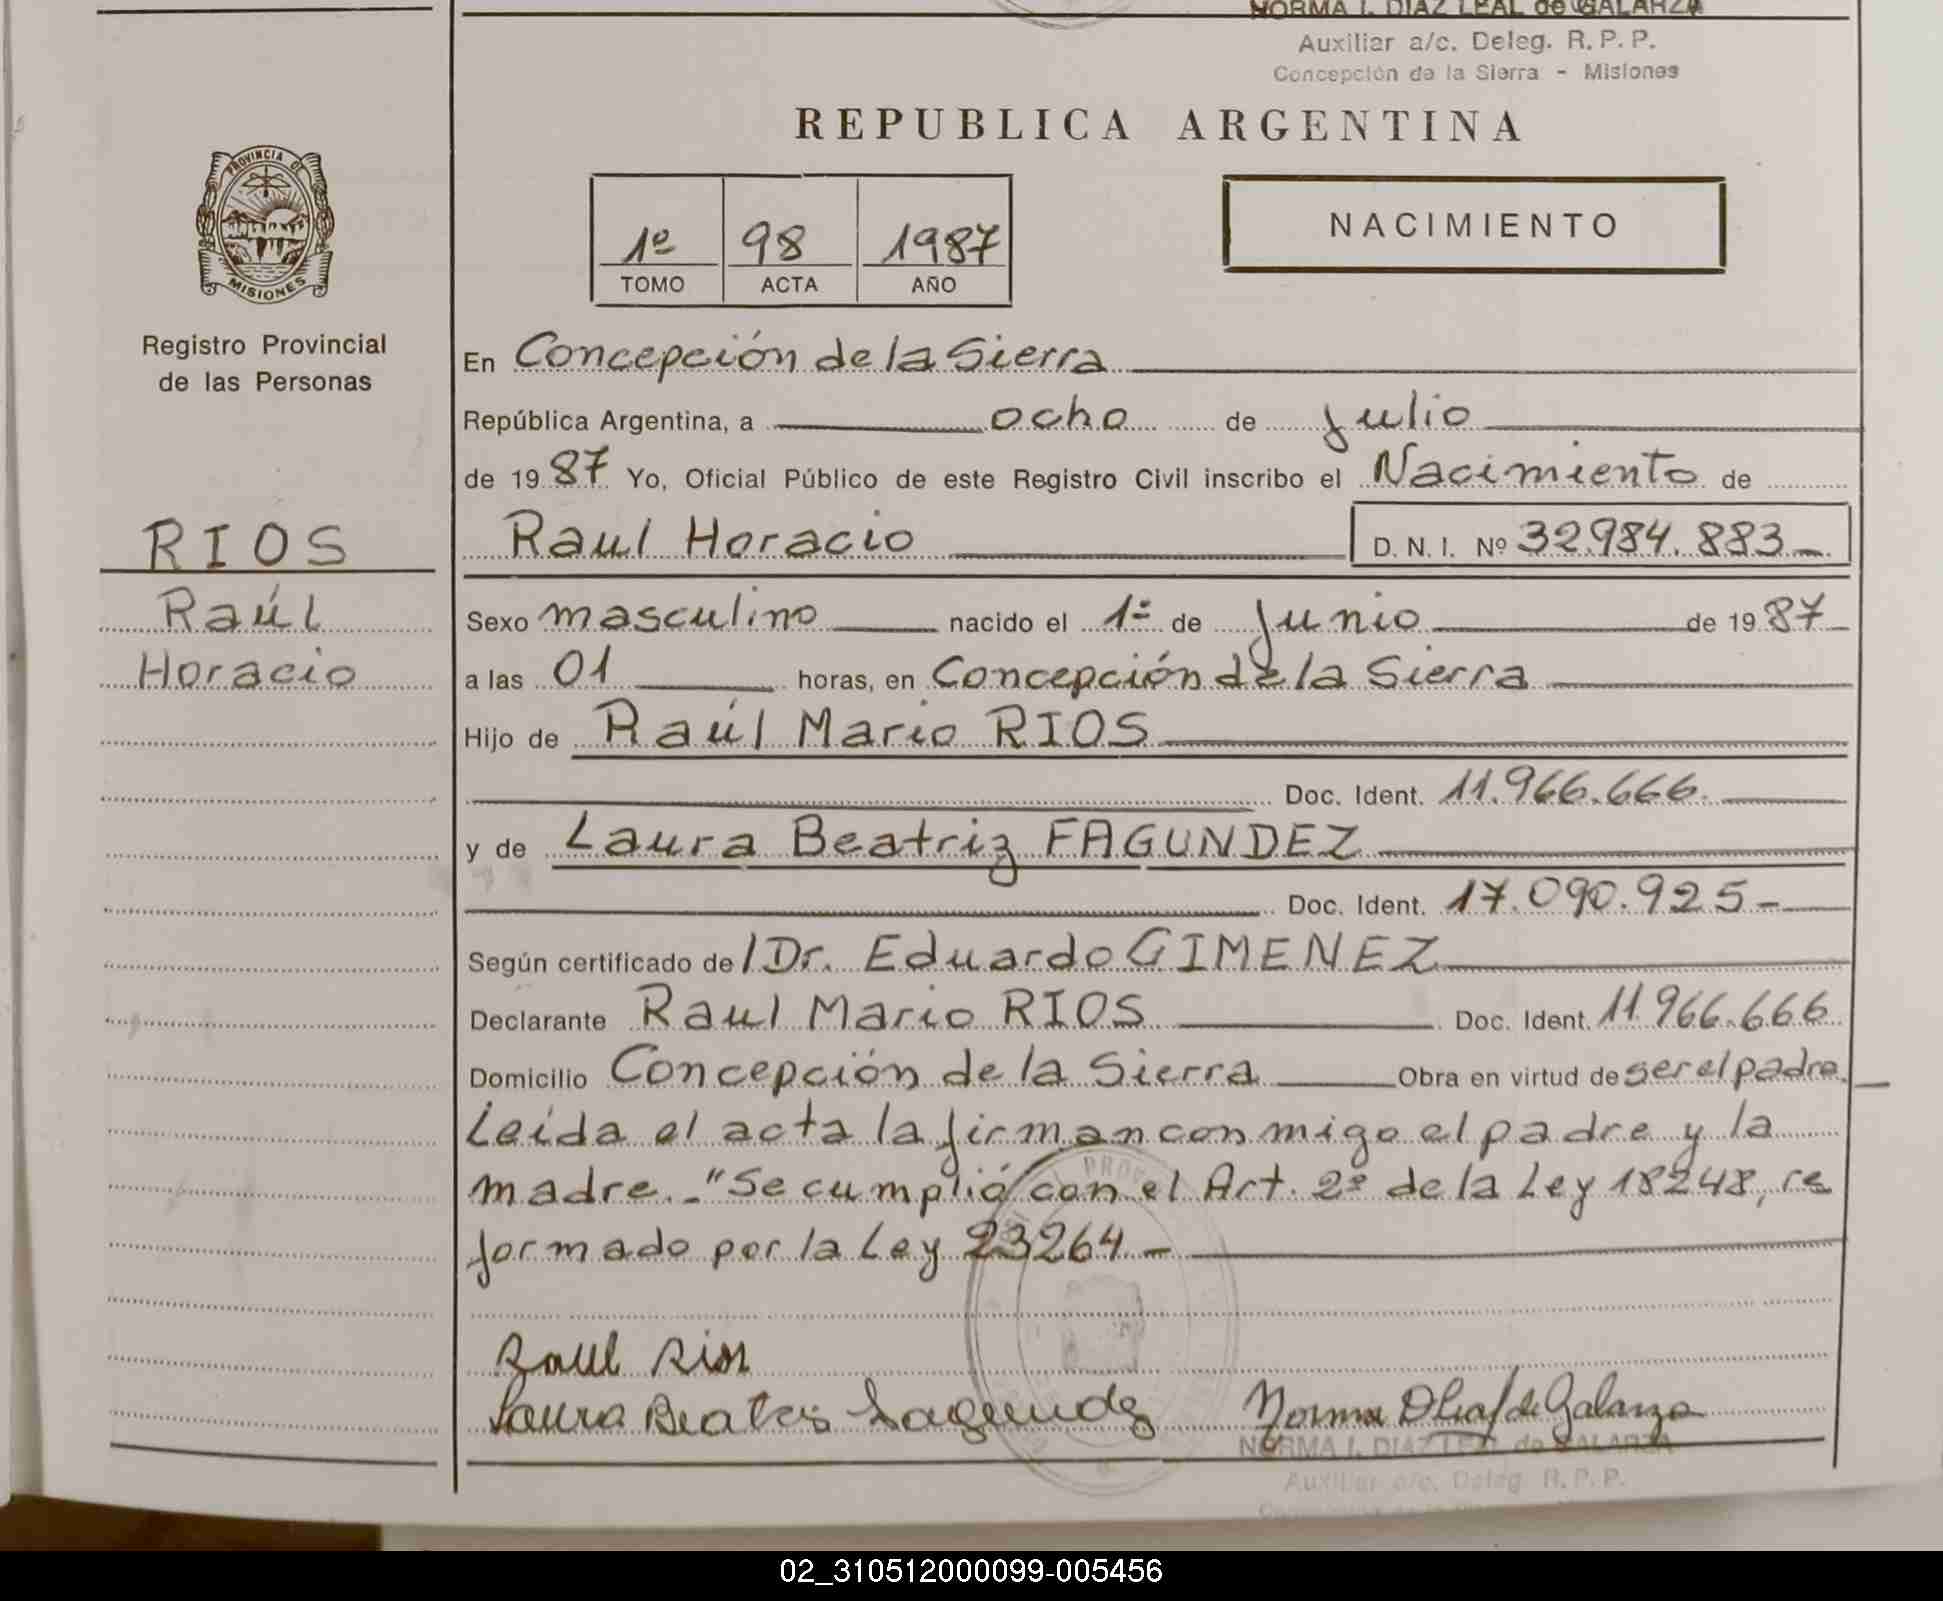 NORMA I. DIAZ LEAL de GALARZA
Auxiliar a/c. Deleg. R. P. P.
Concepción de la Sierra - Misiones
REPUBLICA ARGENTINA
PROVINCIA DE
MISIONES
Registro Provincial
de las Personas
1º 98 1987
TOMO ACTA AÑO
NACIMIENTO
RIOS
Raúl
Horacio
En Concepción de la Sierra
República Argentina, a ocho de Julio
de 1987 Yo, Oficial Público de este Registro Civil inscribo el Nacimiento de
Raul Horacio D. N. I. Nº 32.984.883-
Sexo masculino nacido el 1º de Junio de 1987
a las 01 horas, en Concepción de la Sierra
Hijo de Raúl Mario RIOS
Doc. Ident. 11.966.666.
y de Laura Beatriz FAGUNDEZ
Doc. Ident. 17.090.925-
Según certificado de/ Dr. Eduardo GIMENEZ
Declarante Raul Mario RIOS Doc. Ident. 11.966.666
Domicilio Concepción de la Sierra Obra en virtud de ser el padre.
Leída el acta la firman conmigo el padre y la
madre.-"Se cumplió con el Art. 2º de la Ley 18248, re
formado por la Ley 23264-
Raul Rios
Laura Beatriz Fagundez Norma D Leal de Galarza
NORMA I. DIAZ LEAL de GALARZA
Auxiliar a/c. Deleg. R. P. P.
02_310512000099-005456